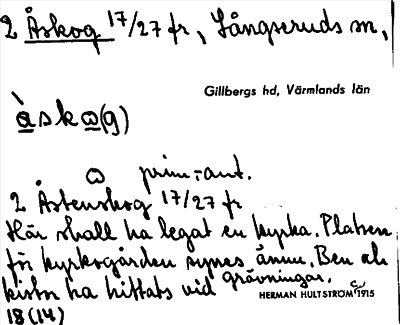 2 Åskog 17/27 fr, Långseruds sn,
Gillbergs hd, Värmlands län
àskω(g)
ω prim.-ant.
2 Åstenskog 17/27 fr
Här skall ha legat en kyrka. Platsen
för kyrkogården synes ännu. Ben och
kistor ha hittats vid grävningar.
HERMAN HULTSTRÖM 1915
18(14)